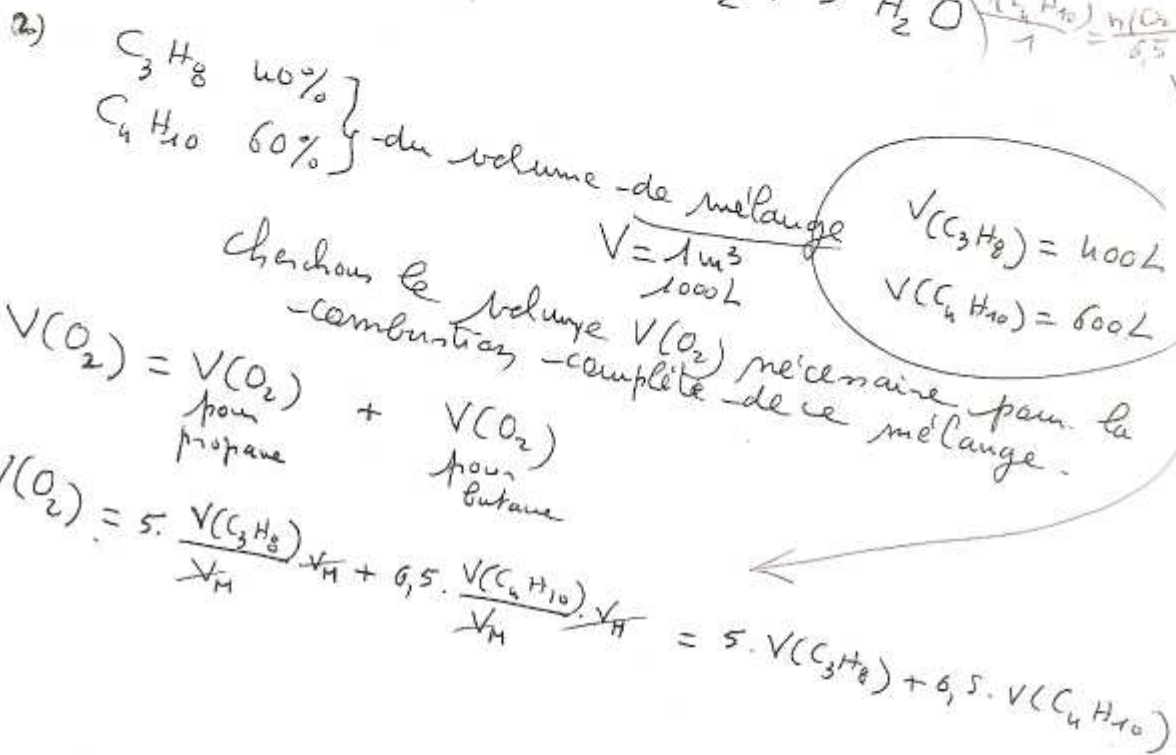 2 H2O n(C4H10)/1 = n(O2/6,5
2)
C3H8 40%
C4H10 60% } du volume de mélange
V = 1m³
1000L
V(C3H8) = 400L
V(C4H10) = 600L
cherchons le volume V(O2) nécessaire pour la
combustion complète de ce mélange.
V(O2) = V(O2) pour propane + V(O2) pour butane
V(O2) = 5. V(C3H8)/VM VM + 6,5. V(C4H10)/VM . VM = 5. V(C3H8) + 6,5. V(C4H10)